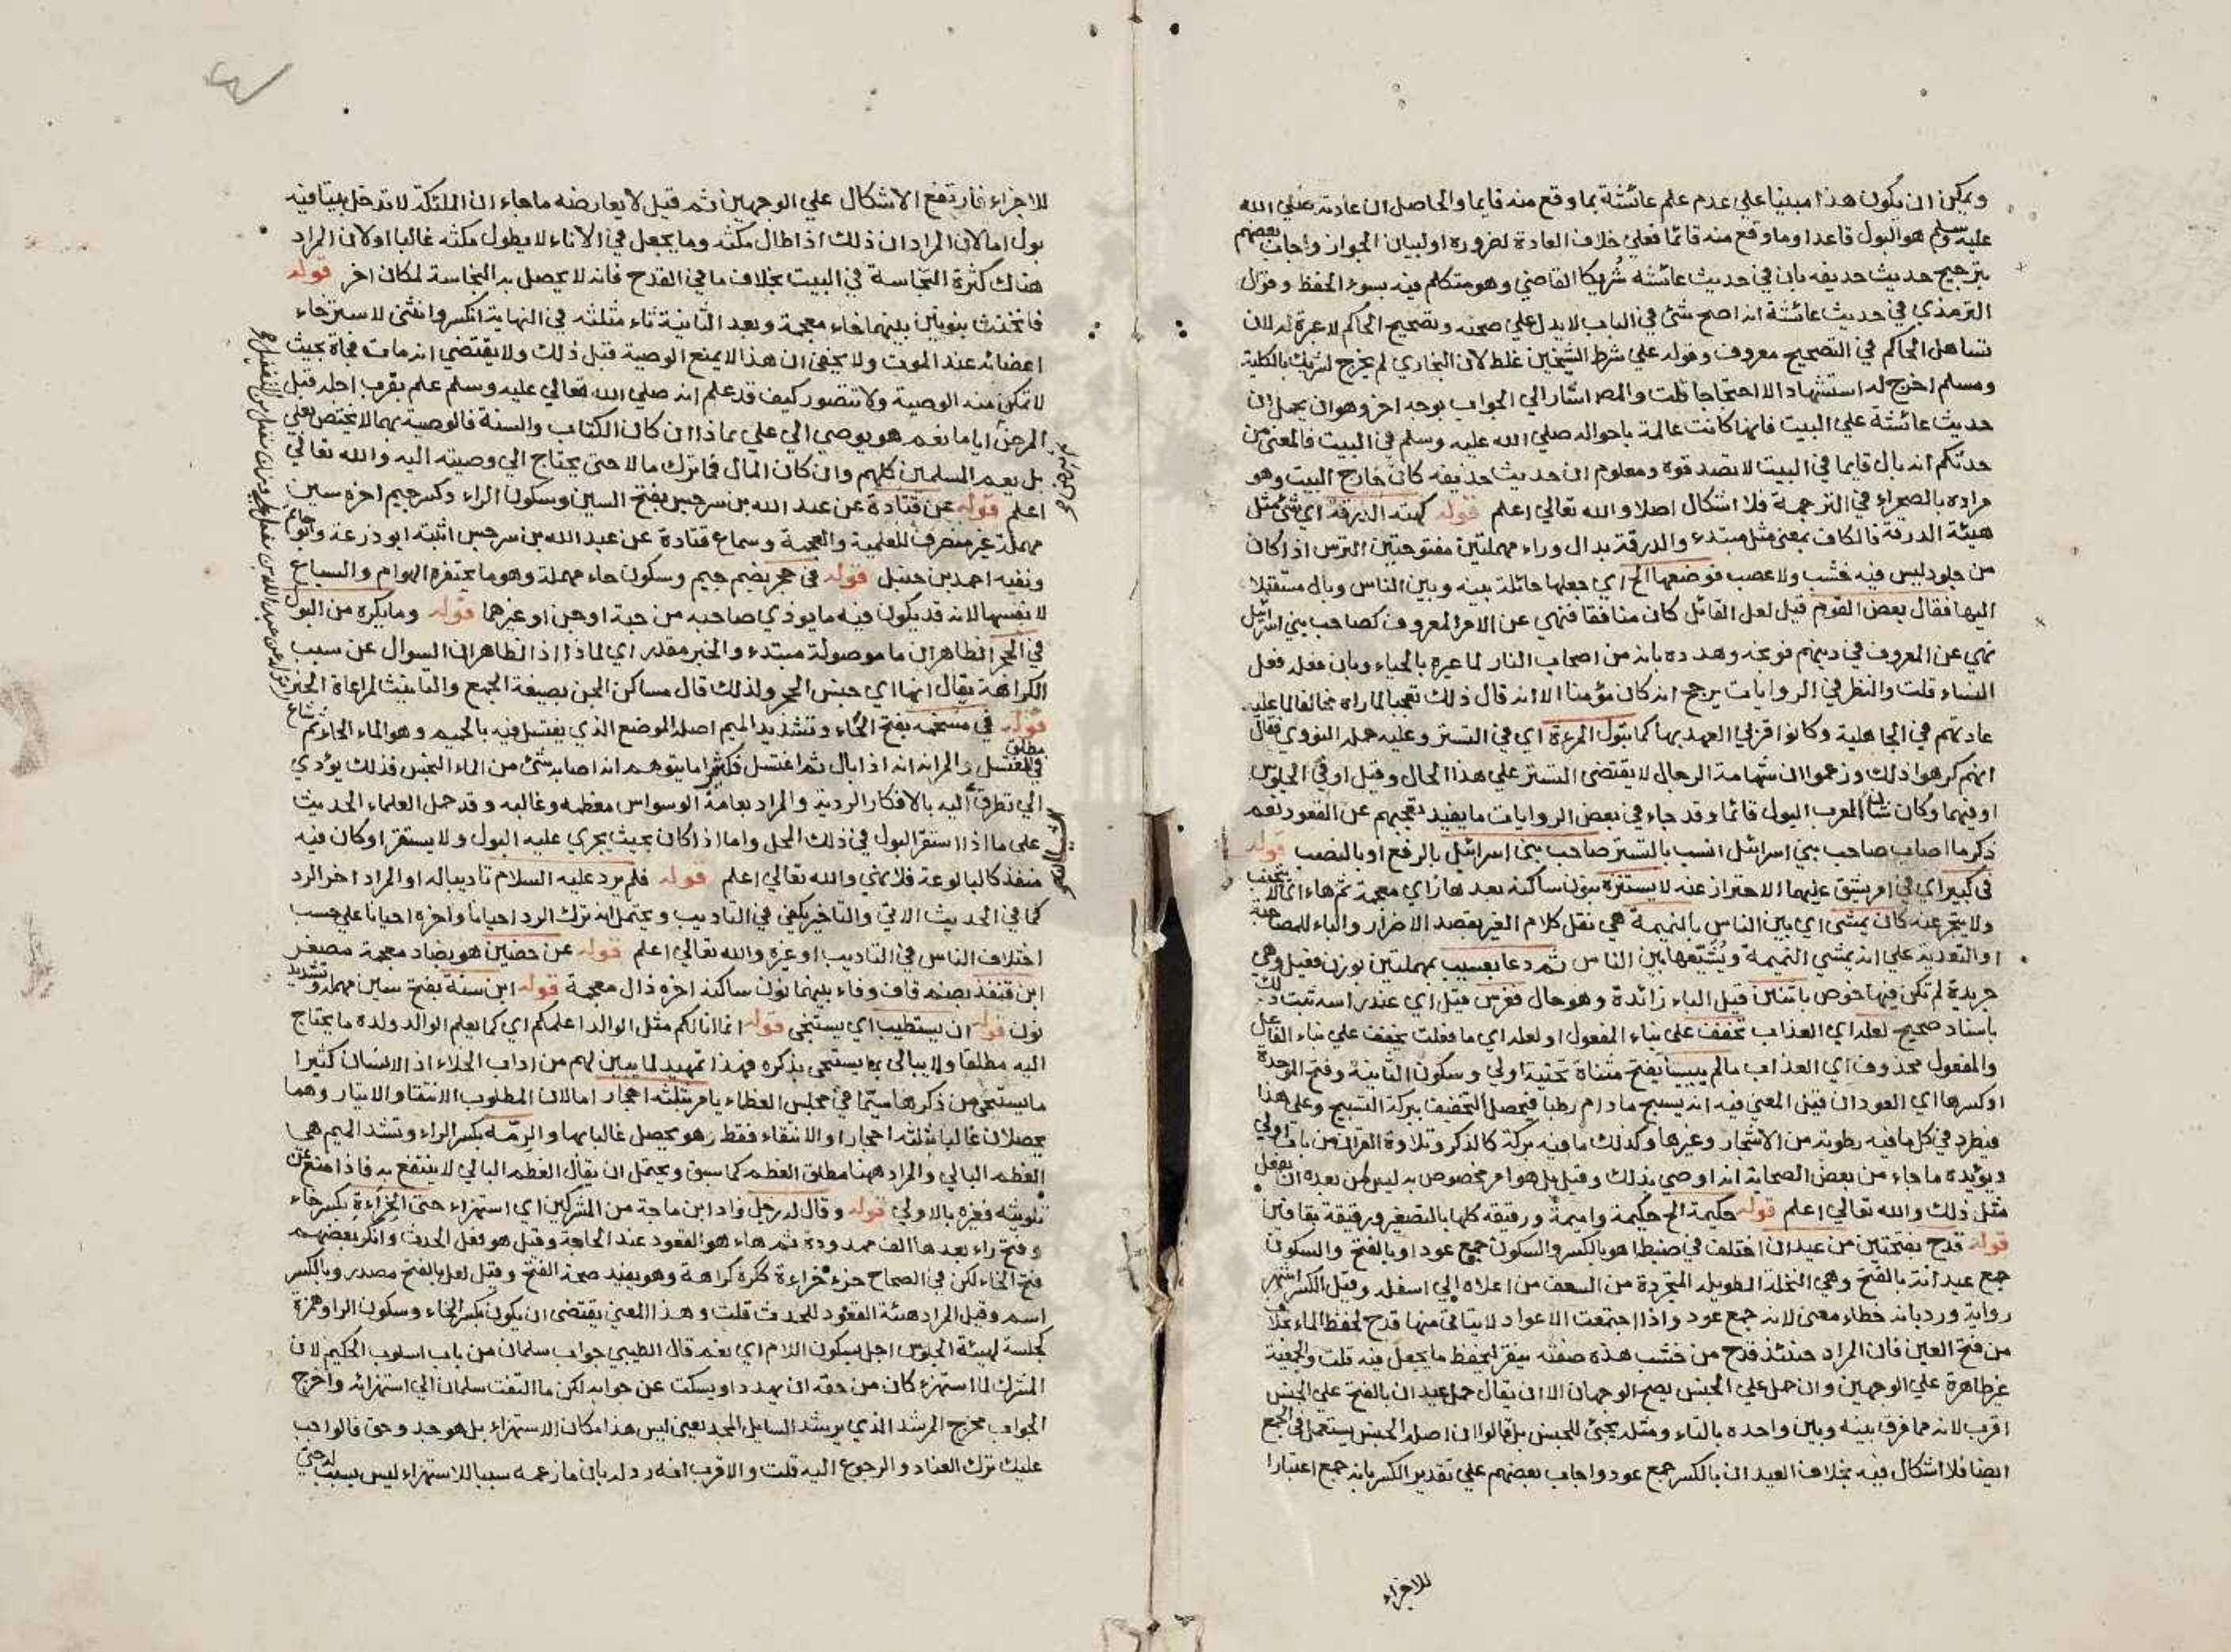 ويمكن ان يكون هذا مبنيا علي عدم علم عائشة بما وقع منه قايما والحاصل ان عادته صلي الله
عليه وسلم هو البول قاعدا وما وقع منه قائما فعلي خلاف العادة لضرورة او لبيان الجواز واجاب بعضهم
بترجيح حديث حذيفه بان في حديث عائشة شريكا القاضي وهو متكلم فيه بسوء الحفظ وقول
الترمذي في حديث عائشة انه اصح شئ في الباب لا يدل علي صحته وتصحيح الحاكم لا عبرة له لان
تساهل الحاكم في التصحيح معروف وقوله علي شرط الشيخين غلط لان البخاري لم يخرج لشريك بالكلية
ومسلم اخرج له استشهادا لا احتجاجا قلت والمص اشار الي الجواب بوجه اخر وهو ان يحمل ان
حديث عائشة علي البيت فانها كانت عالمة باحواله صلي الله عليه وسلم في البيت فالمعني من
حدثكم انه بال قايما في البيت لا تصدقوه ومعلوم ان حديث حذيفه كان خارج البيت وهو
مراده بالصحراء في الترجمة فلا اشكال اصلا والله تعالي اعلم قوله كهيئة الدرقة اي شئ مثل
هيئة الدرقة فالكاف بمعني مثل مبتدء والدرقة بدال وراء مهملتين مفتوحتين الترس اذا كان
من جلود ليس فيه خشب ولا عصب فوضعها الخ اي جعلها حائلة بينه وبين الناس وبال مستقبلا
اليها فقال بعض القوم قيل لعل القائل كان منافقا فنهي عن الامر المعروف كصاحب بني اسرائيل
نهي عن المعروف في دينهم فوبخه وهدده بانه من اصحاب النار لما عيره بالحياء وبان فعله فعل
النساء قلت والنظر في الروايات يرجح انه كان مؤمنا الا انه قال ذلك تعجبا لما راه مخالفا لما عليه
عادتهم في الجاهلية وكانوا قريبي العهد بها كما تبول المرءة اي في التستر وعليه حمله النووي فقال
انهم كرهوا ذلك وزعموا ان شهامة الرجال لا يقتضي التستر علي هذا الحال وقيل او في الجلوس
او فيهما وكان شان العرب البول قائما وقد جاء في بعض الروايات ما يفيد تعجبهم عن القعود نعم
ذكر ما اصاب صاحب بني اسرائيل انسب بالتستر صاحب بني اسرائيل بالرفع او بالنصب قوله
في كبير اي في امر يشق عليهما الاحتراز عنه لا يستنزه بنون ساكنة بعدها زاي معجمة ثم هاء اي لا يتجنب
ولا يتحرز عنه كان يمشي اي بين الناس بالنميمة هي نقل كلام الغير بقصد الاضرار والباء للمصاحبة
او التعدية علي انه يمشي النميمة ويشيعها بين الناس ثم دعا بعسيب بمهملتين بوزن فعيل وهي
جريدة لم تكن فيها خوص باثنين قيل الباء زائدة وهو حال فغرس قيل اي عند راسه ثبت ذلك
باسناد صحيح لعله اي العذاب تخفف علي بناء المفعول او لعله اي ما فعلت يخفف علي بناء الفاعل
والمفعول محذوف اي العذاب ما لم ييبسا بفتح مثناة تحتية اولي وسكون الثانية وفتح الموحدة
او كسرها اي العودان قيل المعني فيه انه يسبح ما دام رطبا فيحصل التخفيف ببركة التسبيح وعلي هذا
فيطرد في كل ما فيه رطوبة من الاشجار وغيرها وكذلك ما فيه بركة كالذكر وتلاوة القران من باب اولي
ويؤيده ما جاء من بعض الصحابة انه اوصي بذلك وقيل بل هو امر مخصوص به ليس لمن بعده ان يفعل
مثل ذلك والله تعالي اعلم قوله حكيمة الخ حكيمة واميمة ورقيقه كلها بالتصغير ورقيقة بقافين
قوله قدح بفتحتين من عيدان اختلف في ضبطه اهو بالكسر والسكون جمع عود او بالفتح والسكون
جمع عيدانة بالفتح وهي النخلة الطويله المتجردة من السعف من اعلاه الي اسفله وقيل الكسر اشهر
رواية ورد بانه خطاء معني لانه جمع عود واذا اجتمعت الاعواد لا يتاتي منها قدح لحفظ الماء بخلاف
من فتح العين فان المراد حينئذ قدح من خشب هذه صفته ينقر ليحفظ ما يجعل فيه قلت والجمعية
غير ظاهرة علي الوجهين وان حمل علي الجنس يصح الوجهان الا ان يقال حمل عيدان بالفتح علي الجنس
اقرب لانه مما فرق بينه وبين واحده بالتاء ومثله يجئ للجنس بل قالوا ان اصله الجنس يستعمل في الجمع
ايضا فلا اشكال فيه بخلاف العيدان بالكسر جمع عود واجاب بعضهم علي تقدير الكسر بانه جمع اعتبارا
للاجزاء
للاجزاء فارتفع الاشكال علي الوجهين ثم قيل لا يعارضه ما جاء ان الملئكة لا تدخل بيتا فيه
بول اما لان المراد ان ذلك اذا طال مكثه وما يجعل في الاناء لا يطول مكثه غالبا او لان المراد
هناك كثرة النجاسة في البيت بخلاف ما في القدح فانه لا يحصل به النجاسة لمكان اخر قوله
فانخنث بنونين بينهما خاء معجمة وبعد الثانية ثاء مثلثه في النهاية انكسر وانثني لاسترخاء
اعضائه عند الموت ولا يخفي ان هذا لا يمنع الوصية قبل ذلك ولا يقتضي انه مات فجاة بحيث
لا تمكن منه الوصية ولا تتصور كيف قد علم انه صلي الله تعالي عليه وسلم علم بقرب اجله قبل
المرض اياما نعم هو يوصي الي علي بماذا ان كان الكتاب والسنة فالوصية بهما لا يختص بعلي
بل يعم المسلمين كلهم وان كان المال فما ترك مالا حتي يحتاج الي وصيته اليه والله تعالي
اعلم قوله عن قتادة عن عبد الله بن سرجس بفتح السين وسكون الراء وكسر جيم اخره سين
مهملة غير منصرف للعلمية والعجمة وسماع قتادة عن عبد الله بن سرجس اثبته ابو زرعة وابو حاتم
ونفيه احمد بن حنبل قوله في جحر بضم جيم وسكون حاء مهملة وهو ما يحتفره الهوام والسباع
لانفسها لانه قد يكون فيه ما يوذي صاحبه من حية او جن او غيرهما قوله وما يكره من البول
في الجحر الظاهر ان ما موصولة مبتدء والخبر مقدر اي لماذا اذ الظاهر ان السوال عن سبب
الكراهة يقال انها اي جنس الجحر ولذلك قال مساكن الجن بصيغة الجمع والتانيث لمراعاة الخبر
قوله في مستحمه بفتح الحاء وتشديد الميم اصله الموضع الذي يغتسل فيه بالحميم وهو الماء الحار ثم شاع
في مطلق المغتسل والمراد انه اذا بال ثم اغتسل فكثيرا ما يتوهم انه اصابه شئ من الماء النجس فذلك يؤدي
الي تطرق اليه بالافكار الردية والمراد بعامة الوسواس معظمه وغالبه وقد حمل العلماء الحديث
علي ما اذا استقر البول في ذلك المحل واما اذا كان بحيث يجري عليه البول ولا يستقر او كان فيه
منفذ كالبالوعة فلا نهي والله تعالي اعلم قوله فلم يرد عليه السلام تاديبا له او المراد اخر الرد
كما في الحديث الاتي والتاخير يكفي في التاديب ويحتمل انه ترك الرد احيانا واخره احيانا علي حسب
اختلاف الناس في التاديب او غيره والله تعالي اعلم قوله عن حضين هو بضاد معجمة مصغر
ابن قنفذ بضم قاف وفاء بينهما نون ساكنة اخره ذال معجمة قوله ابن سنة بفتح سين مهملة وتشديد
نون قوله ان يستطيب اي يستنجي قوله انما انا لكم مثل الوالد اعلمكم اي كما يعلم الوالد ولده ما يحتاج
اليه مطلقا ولا يبالي بما يستحي بذكره فهذا تمهيد لما يبين لهم من اداب الخلاء اذ الانسان كثيرا
ما يستحي من ذكرها سيما في مجلس العظماء يامر بثلثة احجار اما لان المطلوب الانتقاء والايتار وهما
يحصلان غالبا بثلثة احجار او الانتقاء فقط وهو يحصل غالبا بها والرمة بكسر الراء وتشد الميم هي
العظم البالي والمراد ههنا مطلق العظم كما سبق ويحتمل ان يقال العظم البالي لا ينتفع به فاذا منع عن
تلويثه فغيره بالاولي قوله وقال له رجل زاد ابن ماجة من المشركين اي استهزاء حتي الخراءة بكسر خاء
وفتح راء بعدها الف ممدودة ثم هاء هو القعود عند الحاجة وقيل هو فعل الحدث وانكر بعضهم
فتح الخاء لكن في الصحاح خرء خراءة ككره كراهة وهو يفيد صحة الفتح وقيل لعل بالفتح مصدر وبالكسر
اسم وقيل المراد هيئة القعود للحدث قلت وهذا المعني يقتضي ان يكون بكسر الخاء وسكون الراء وهمزة
كجلسة لهيئة الجلوس اجل بسكون اللام اي نعم قال الطيبي جواب سلمان من باب اسلوب الحكيم لان
المشرك لما استهزء كان من حقه ان يهدد او يسكت عن جوابه لكن ما التفت سلمان الي استهزائه واخرج
الجواب مخرج المرشد الذي يرشد السايل المجد يعني ليس هذا مكان الاستهزاء بل هو جد وحق فالواجب
عليك ترك العناد والرجوع اليه قلت والاقرب انه رد له بان ما زعمه سببا للاستهزاء ليس بسبب له حتي